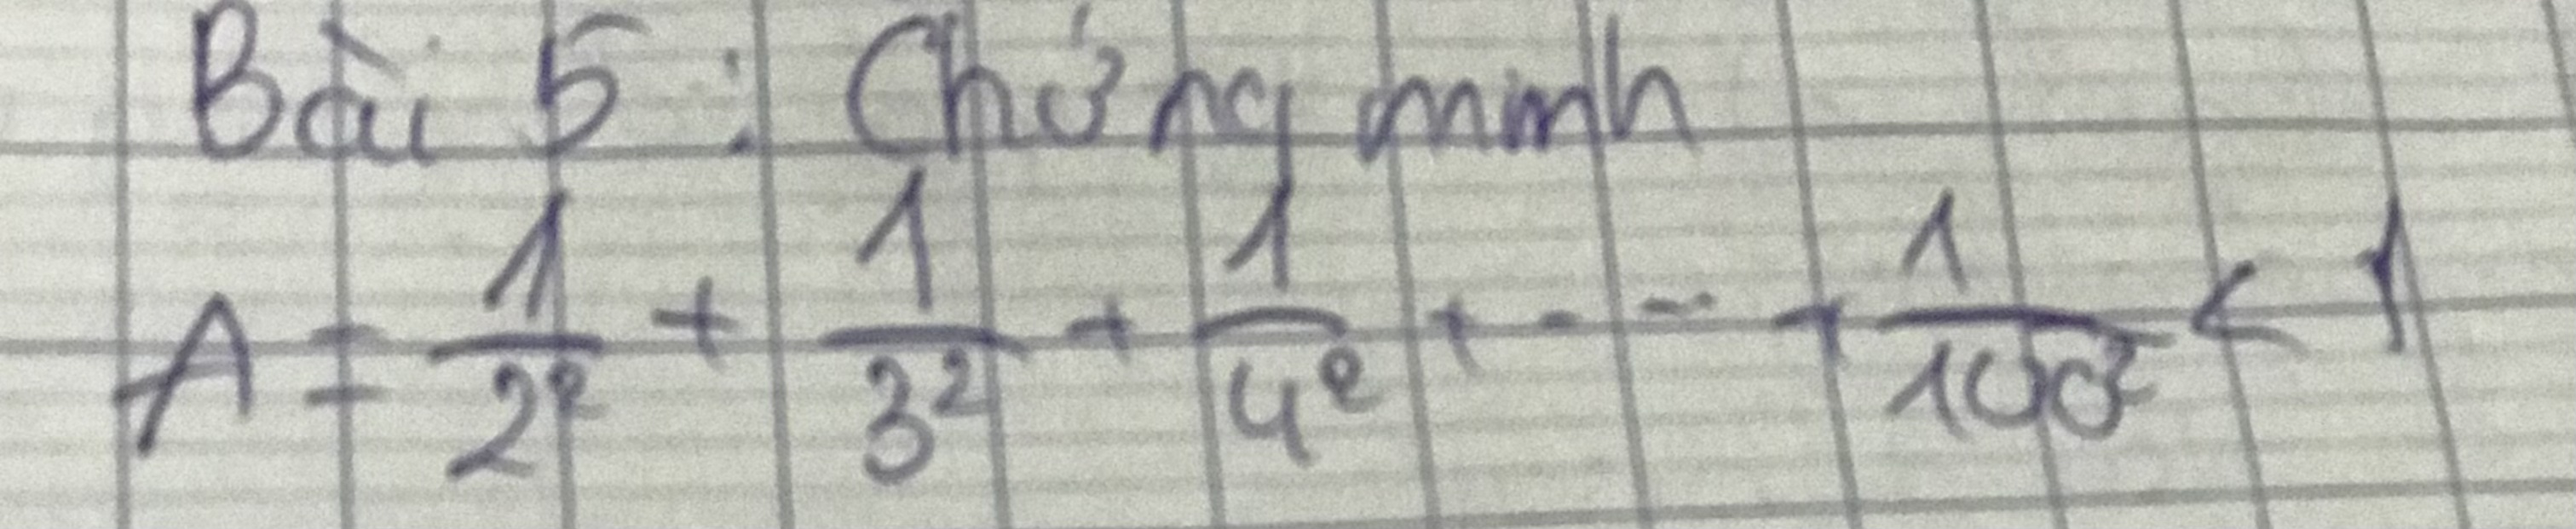 Bài 5: Chứng minh
A = 1/2² + 1/3² + 1/4² + - - + 1/100² < 1